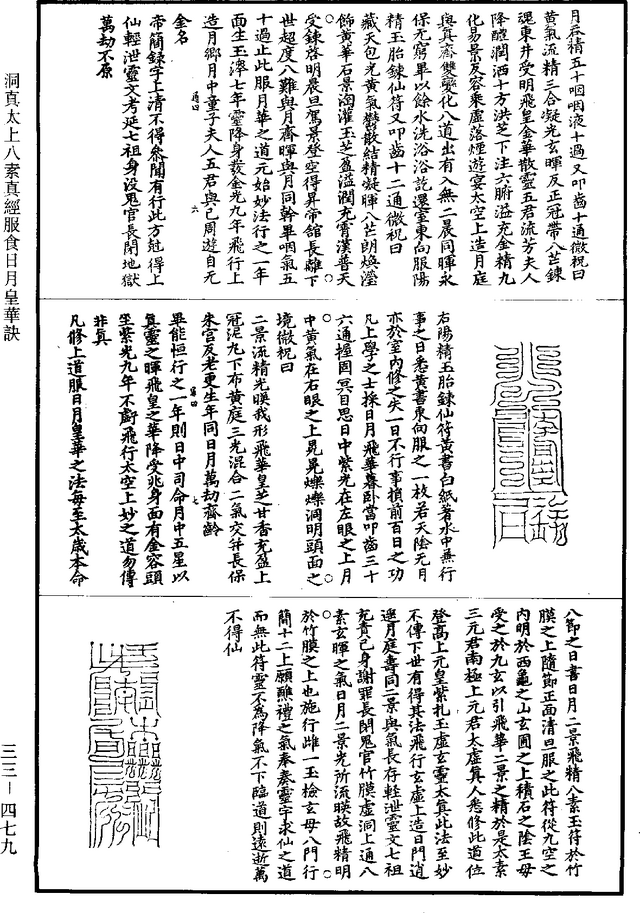 月吞精五十咽咽液十過又叩齒十通微祝曰
黃氣流精三合凝光玄暉反正冠帶八芒鍊
魂東井受明飛皇金華散靈五君流芳夫人
降醴潤洒十方洪芝下注六腑溢充金精九
化易景反容乘虛落煙遊宴太空上造月庭
與真齊雙變化八道出有入無二晨同暉永
保元窮畢以餘水洗浴浴訖還室東向服陽
精玉胎鍊仙符又叩齒十二通微祝曰
藏天包光黃氣鬱散結精凝暉八芒朗煥瀅
飾黃華石景洶灌玉芝盈溢潤充霄漢普天
受鍊啓明晨旦駕景登空得昇帝館長離下
世超度八難與月齊暉與月同幹畢咽氣五
十過止此服月華之道元始妙法行之一年
面生玉澤七年靈降身發金光九年飛行上
造月鄉月中童子夫人五君與己周遊自元
金名
帝簡錄字上清不得參聞有行此方尅得上
仙輕泄靈文考延七祖身沒鬼官長閉地獄
萬劫不原
右陽精玉胎鍊仙符黃書白紙著水中無行
事之日悉黃書東向服之一枚若天陰无月
亦於室內修之失一日不行事損前百日之功
凡上學之士採日月飛華暮卧當叩齒三十
六通握固冥目思日中紫光在左眼之上月
中黃氣在右眼之上晃晃爍爍洞明頭面之
境微祝曰
二景流精光映我形飛華皇芝甘香充盈上
冠泥丸下布黃庭三光混合二氣交并長保
朱宮反老更生年同日月萬劫齊齡
畢能恒行之一年則日中司命月中五星以
真靈之暉飛皇之華降受兆身面有金容頭
生紫光九年不虧飛行太空上妙之道勿傳
非真
凡修上道服日月皇華之法每至太歲本命
八節之日書日月二景飛精八素玉符於竹
膜之上隨節正面清旦服之此符從九空之
內明於西龜之山玄圃之上積石之陰王母
受之於九玄以引飛華二景之精於是太素
三元君南極上元君太虛真人悉修此道位
登高上元皇紫札玉虛玄靈太真此法至妙
不傳下世有得其法飛行玄虛上造日門逍
遙月庭壽同二景與氣長存輕泄靈文七祖
充責己身謝罪長閉鬼官竹膜虛洞上通八
素玄暉之氣日月二景光所流映故飛精明
於竹膜之上也施行雌一玉檢玄母八門行
簡十二上願醮禮之氣奉奏靈宇求仙之道
而無此符靈不為降氣不下臨道則遠逝萬
不得仙
洞真太上八素真經服食日月皇華訣
三三－四七九